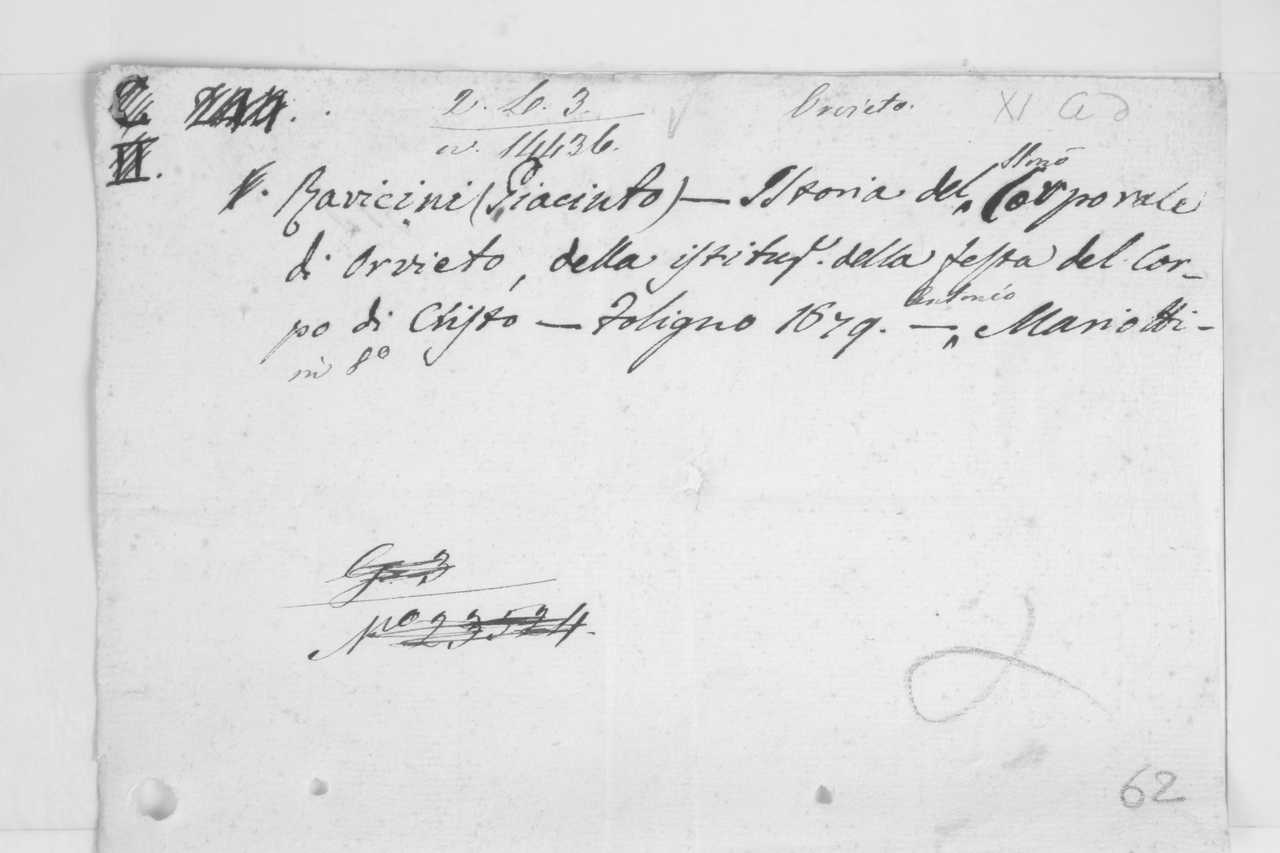 2. L. 3. Orvieto. XI a d
n. 14436.
Ravicini (Giacinto) — Istoria del SSmo Corporale
di Orvieto, della istituz. della festa del Cor-
po di Cristo — Foligno 1679. — Antonio Mariotti -
in 8º
G. 3
Nº 23524.
62